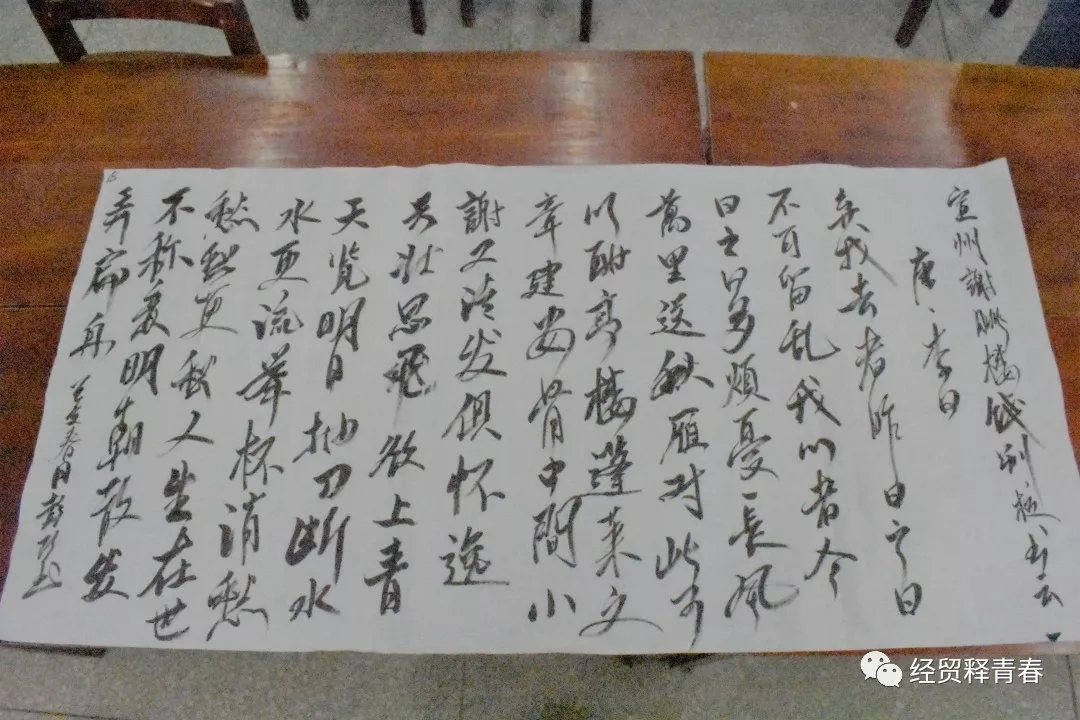 宣州謝朓楼饯别校书云
唐、李白
弃我去者昨日之日
不可留乱我心者今
日之日多烦憂長风
萬里送秋雁对此可
以酣高楼蓬莱文
章建安骨中間小
謝又清发俱怀逸
兴壮思飛欲上青
天览明日抽刀断水
水更流举杯消愁
愁愁更愁人生在世
不称意明朝散发
弄扁舟 春月
经贸释青春